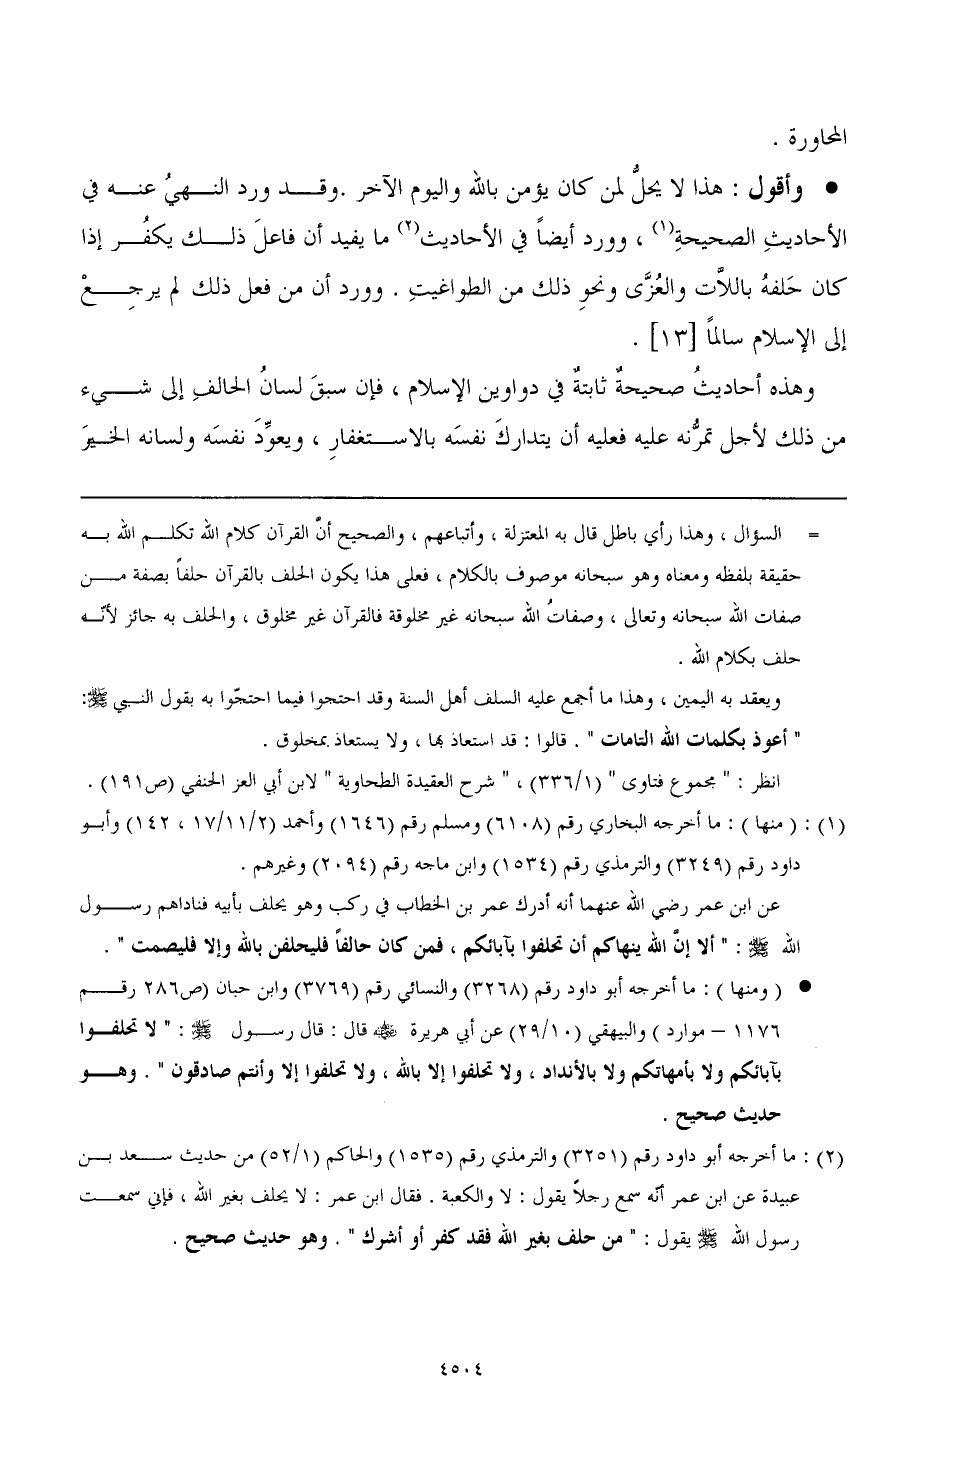 المحاورة .
● وأقول : هذا لا يحلُّ لمن كان يؤمن بالله واليوم الآخر .وقد ورد النهيُ عنه في
الأحاديثِ الصحيحةِ(١) ، وورد أيضاً في الأحاديث(٢) ما يفيد أن فاعلَ ذلك يكفُر إذا
كان حَلفهُ باللاَّت والعُزَّى ونحوِ ذلك من الطواغيتِ . وورد أن من فعل ذلك لم يرجِعْ
إلى الإسلام سالماً [١٣] .
وهذه أحاديثُ صحيحةٌ ثابتةٌ في دواوين الإسلام ، فإن سبقَ لسانُ الحالفِ إلى شيء
من ذلك لأجل تمرُّنه عليه فعليه أن يتداركَ نفسَه بالاستغفارِ ، ويعوِّدَ نفسَه ولسانه الخيرَ
= السؤال ، وهذا رأي باطل قال به المعتزلة ، وأتباعهم ، والصحيح أنَّ القرآن كلام الله تكلم الله به
حقيقة بلفظه ومعناه وهو سبحانه موصوف بالكلام ، فعلى هذا يكون الحلف بالقرآن حلفاً بصفة من
صفات الله سبحانه وتعالى ، وصفاتُ الله سبحانه غير مخلوقة فالقرآن غير مخلوق ، والحلف به جائز لأنّه
حلف بكلام الله .
ويعقد به اليمين ، وهذا ما أجمع عليه السلف أهل السنة وقد احتجوا فيما احتجّوا به بقول النبي ﷺ:
" أعوذ بكلمات الله التامات " . قالوا : قد استعاذ بها ، ولا يستعاذ بمخلوق .
انظر : " مجموع فتاوى " (٣٣٦/١) ، " شرح العقيدة الطحاوية " لابن أبي العز الحنفي (ص١٩١) .
(١) : ( منها ) : ما أخرجه البخاري رقم (٦١٠٨) ومسلم رقم (١٦٤٦) وأحمد (١٧/١١/٢ ، ١٤٢) وأبو
داود رقم (٣٢٤٩) والترمذي رقم (١٥٣٤) وابن ماجه رقم (٢٠٩٤) وغيرهم .
عن ابن عمر رضي الله عنهما أنه أدرك عمر بن الخطاب في ركب وهو يحلف بأبيه فناداهم رسول
الله ﷺ : " ألا إنَّ الله ينهاكم أن تحلفوا بآبائكم ، فمن كان حالفاً فليحلفن بالله وإلا فليصمت " .
● ( ومنها ) : ما أخرجه أبو داود رقم (٣٢٦٨) والنسائي رقم (٣٧٦٩) وابن حبان (ص٢٨٦ رقم
١١٧٦ – موارد ) والبيهقي (٢٩/١٠) عن أبي هريرة ﷺ قال : قال رسول ﷺ : " لا تحلفوا
بآبائكم ولا بأمهاتكم ولا بالأنداد ، ولا تحلفوا إلا بالله ، ولا تحلفوا إلا وأنتم صادقون " . وهو
حديث صحيح .
(٢) : ما أخرجه أبو داود رقم (٣٢٥١) والترمذي رقم (١٥٣٥) والحاكم (٥٢/١) من حديث سعد بن
عبيدة عن ابن عمر أنّه سمع رجلاً يقول : لا والكعبة . فقال ابن عمر : لا يحلف بغير الله ، فإني سمعت
رسول الله ﷺ يقول : " من حلف بغير الله فقد كفر أو أشرك " . وهو حديث صحيح .
٤٥٠٤